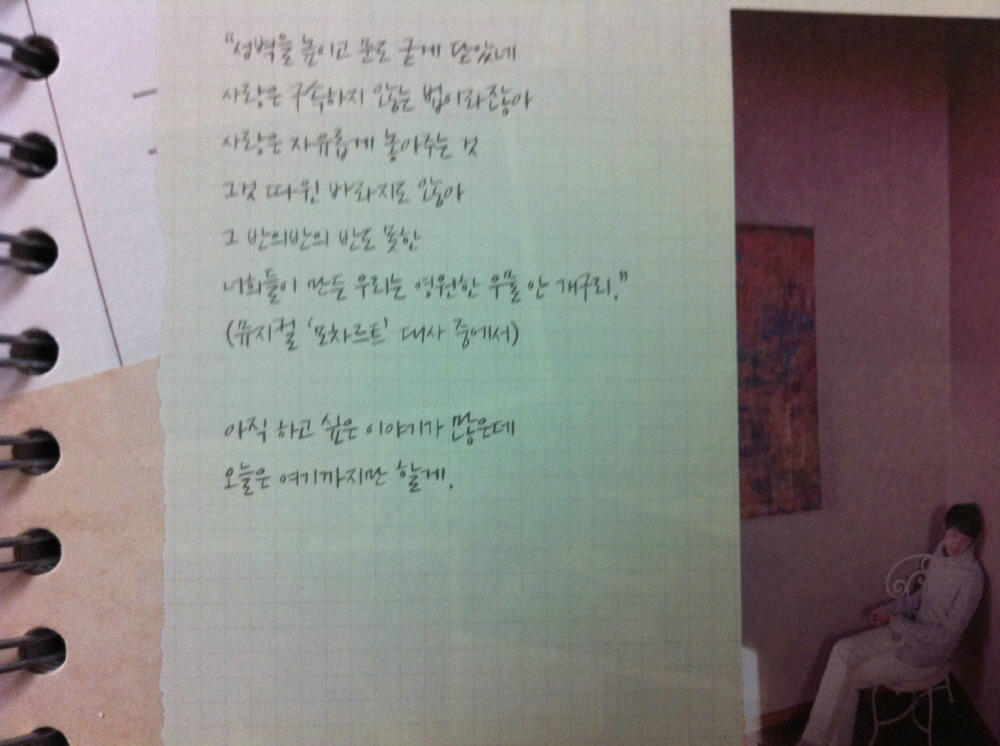 "성벽을 높이고 문도 굳게 닫았네
사랑은 구속하지 않는 법이라잖아
사랑은 자유롭게 놓아주는 것
그것 따윈 바라지도 않아
그 반의반의 반도 못한
너희들이 만든 우리는 영원한 우물 안 개구리."
(뮤지컬 '모차르트' 대사 중에서)
아직 하고 싶은 이야기가 많은데
오늘은 여기까지만 할게.